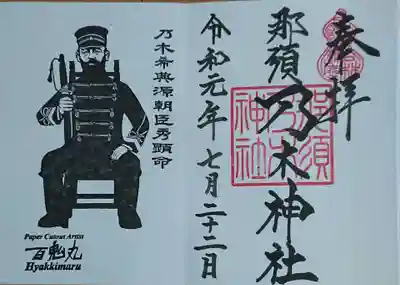 奉拝
那須乃木神社
那須乃木神社
令和元年七月二十二日
乃木希典源朝臣秀顕命
Paper Cutout Artist
百鬼丸
Hyakkimaru